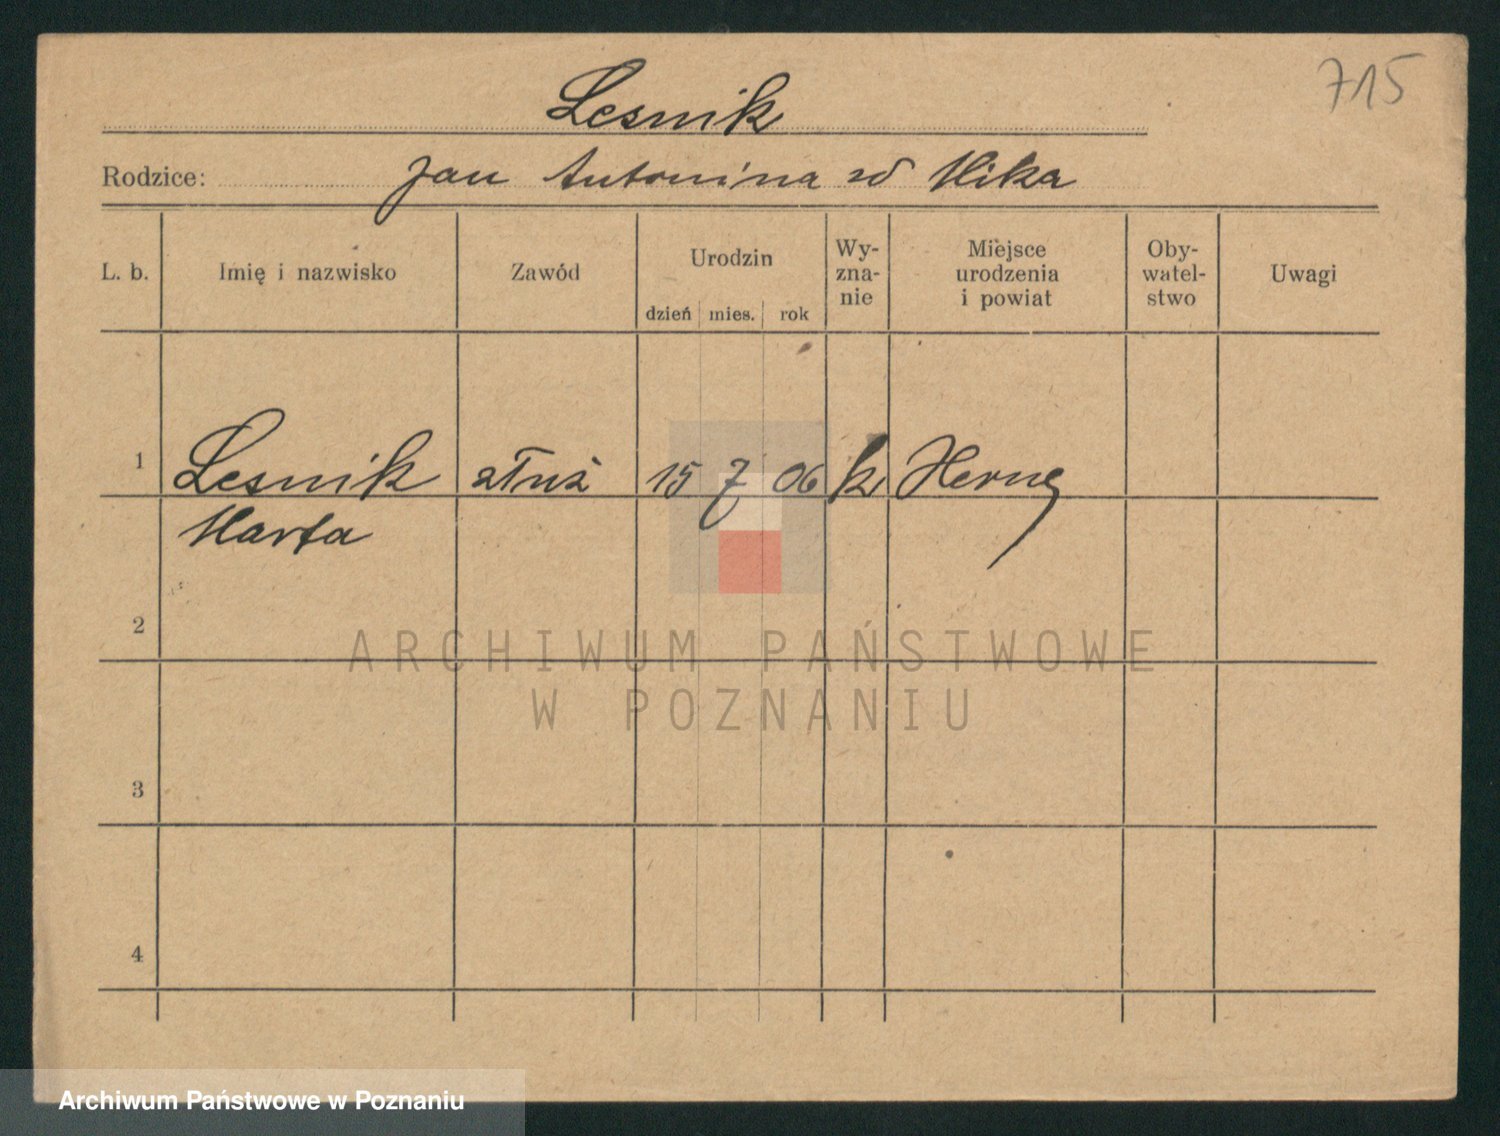 715
Lesnik
Rodzice: Jan Antonina zd Mika
L. b. Imię i nazwisko Zawód Urodzin dzień mies. rok Wy-zna-nie Miejsce urodzenia i powiat Oby-watel-stwo Uwagi
1 Lesnik służ 15 7 06 k Herne
Marta
2
3
4
ARCHIWUM PAŃSTWOWE
W POZNANIU
Archiwum Państwowe w Poznaniu